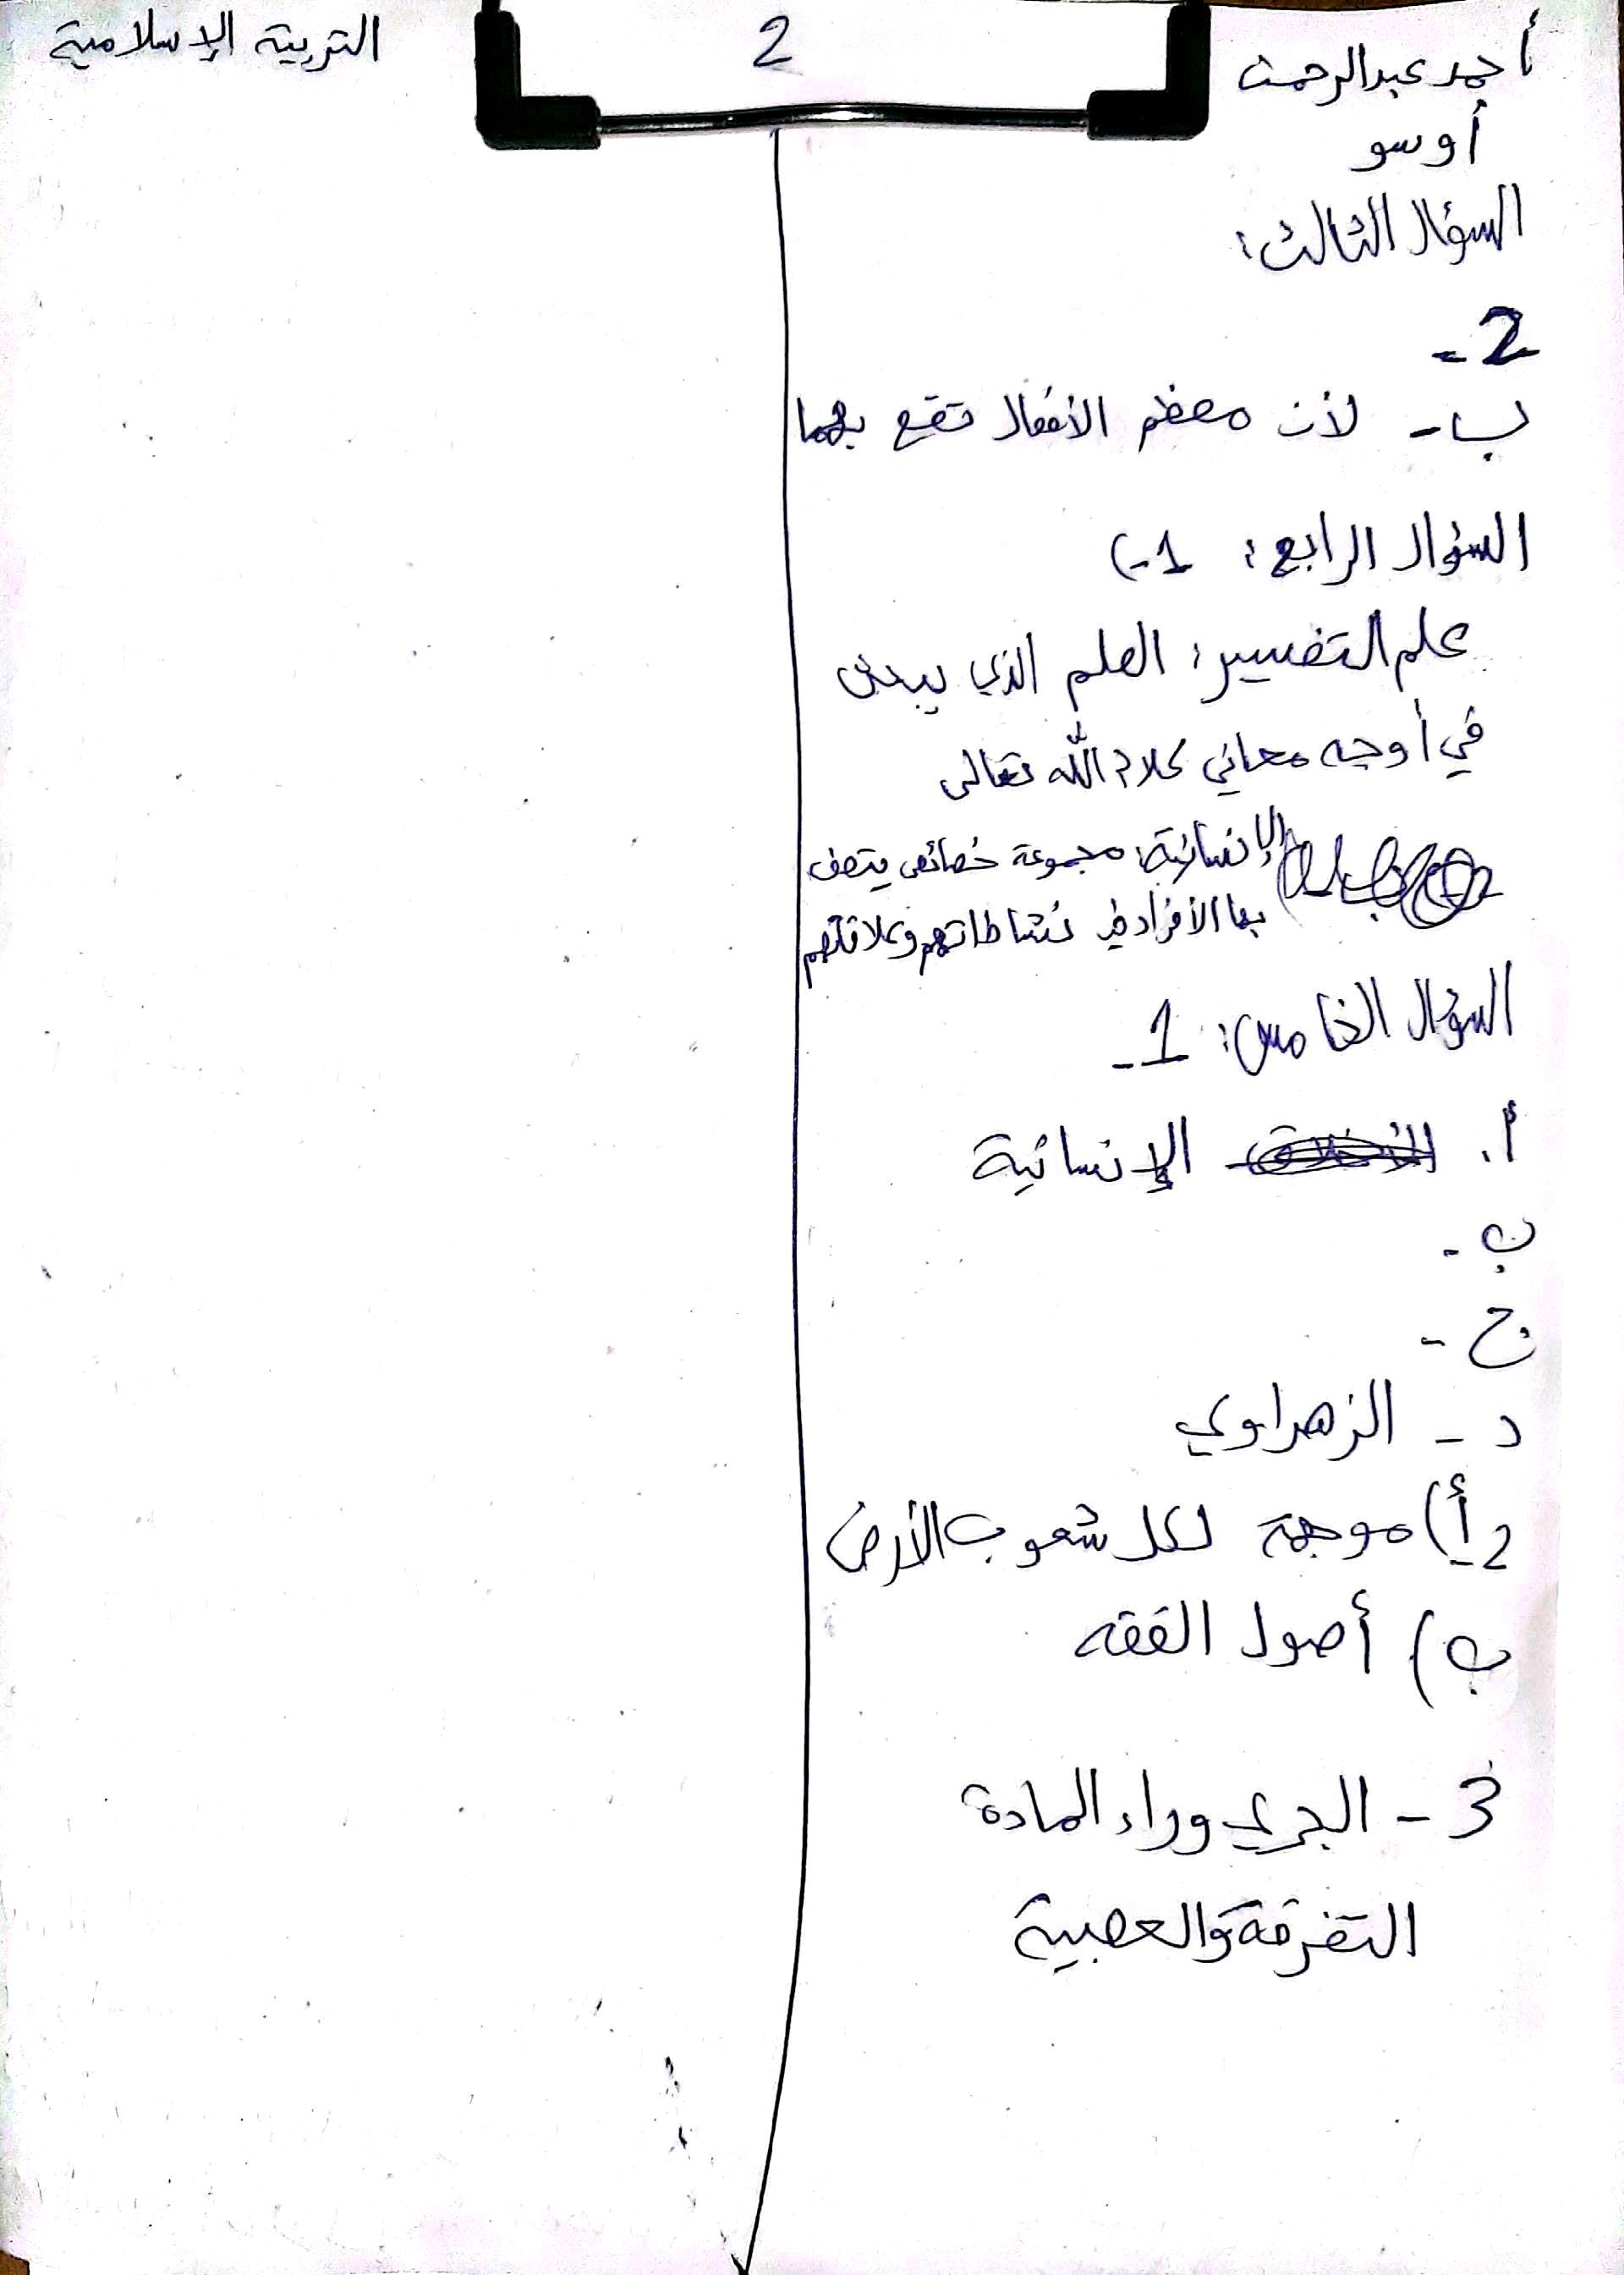 أحمد عبدالرحمن
أوسو
2
التربية الإسلامية
السؤال الثالث:
2-
ب- لأن معظم الأفعال تقع بهما
السؤال الرابع: 1-)
علم التفسير: العلم الذي يبحث
في أوجه معاني كلام الله تعالى
الإنسانية: مجموعة خصائص يتصف
بها الأفراد في نشاطاتهم وعلاقتهم
السؤال الخامس: 1-
أ. الإنسانية
ب-
ج-
د- الزهراوي
2- أ) موجهة لكل شعوب الأرض
ب) أصول الفقه
3- الجري وراء المادة
التفرقة والعصبية